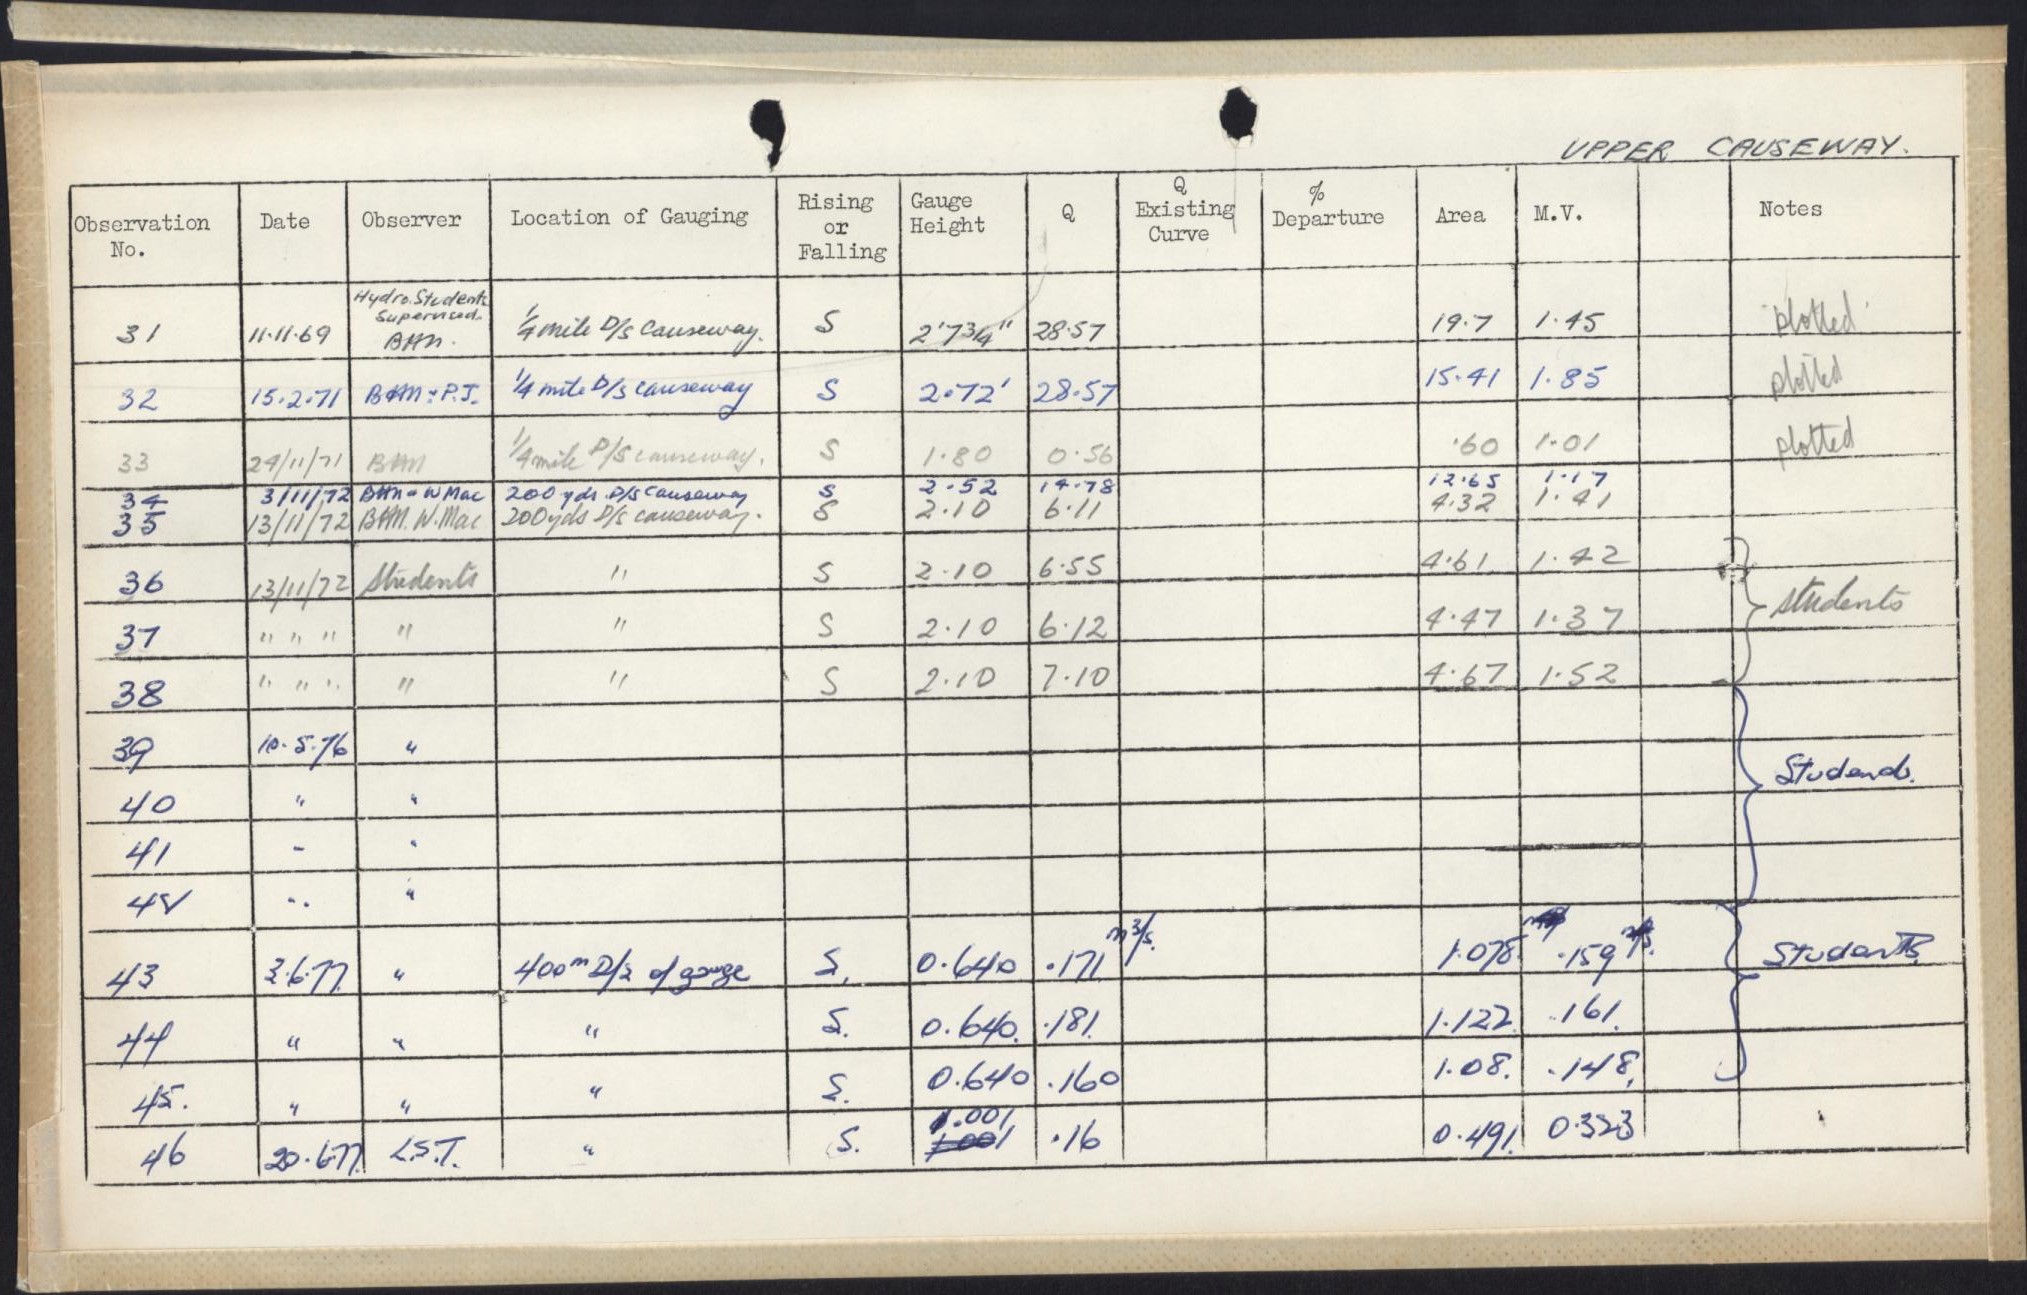 UPPER CAUSEWAY.
Observation No. Date Observer Location of Gauging Rising or Falling Gauge Height Q Q Existing Curve % Departure Area M.V. Notes
31 11.11.69 Hydro. Students Supervised. BHM. 1/4 mile D/s Causeway. S 2'7 3/4" 28.57 19.7 1.45 plotted
32 15.2.71 BHM & P.J. 1/4 mile D/s causeway S 2.72' 28.57 15.41 1.85 plotted
33 24/11/71 BHM 1/4 mile D/S causeway. S 1.80 0.56 .60 1.01 plotted
34 3/11/72 BHM & W Mac 200 yds D/s Causeway S 2.52 14.78 12.65 1.17
35 13/11/72 BHM. W. Mac 200 yds D/s causeway. S 2.10 6.11 4.32 1.41
36 13/11/72 Students " S 2.10 6.55 4.61 1.42
37 " " " " " S 2.10 6.12 4.47 1.37 students
38 " " " " " S 2.10 7.10 4.67 1.52
39 10.5.76 "
40 " " Students.
41 " "
42 " "
43 3.6.77. " 400m D/s of gauge S. 0.640 .171 m3/s. 1.078 .159 Students
44 " " " S. 0.640. .181. 1.122 .161.
45. " " " S. 0.640 .160 1.08. .148.
46 20.6.77. L.S.T. " S. 1.001 .16 0.491. 0.323